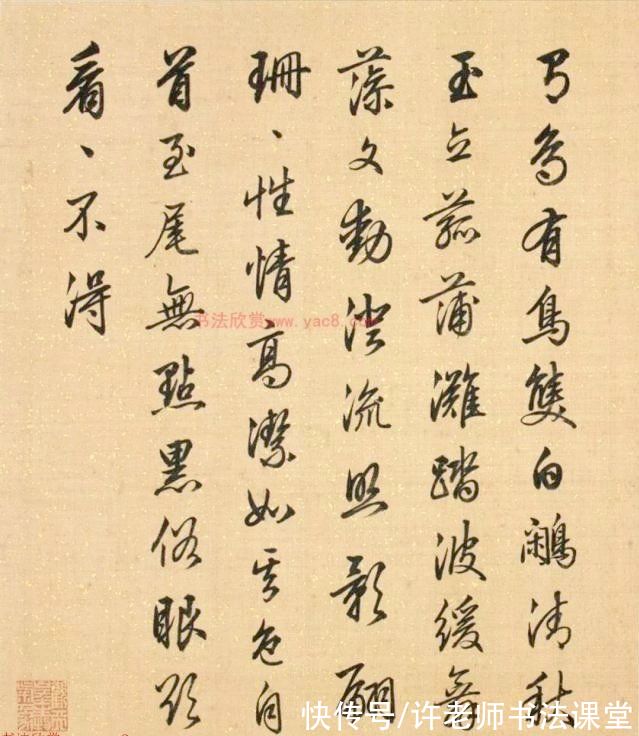 有鳥有鳥雙白鷴清秋
玉立菰蒲灘踏波緩舞
藻文動澄流照影翩
珊、性情高潔如其色自
首至尾無點黑俗眼欲
看、不得
书法欣赏www.yac8.com
快传号/许老师书法课堂